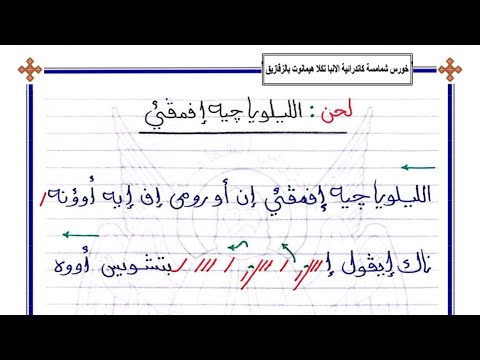 خورس شمامسة كاتدرائية الانبا تكلا هيمانوت بالزقازيق
لحن : الليلويا چيه إفمڤئي
الليلويا چيه إفمڤئي إن أو رومى إف إيه أوؤنه
ناك إيڤول إ بتشويس أووه